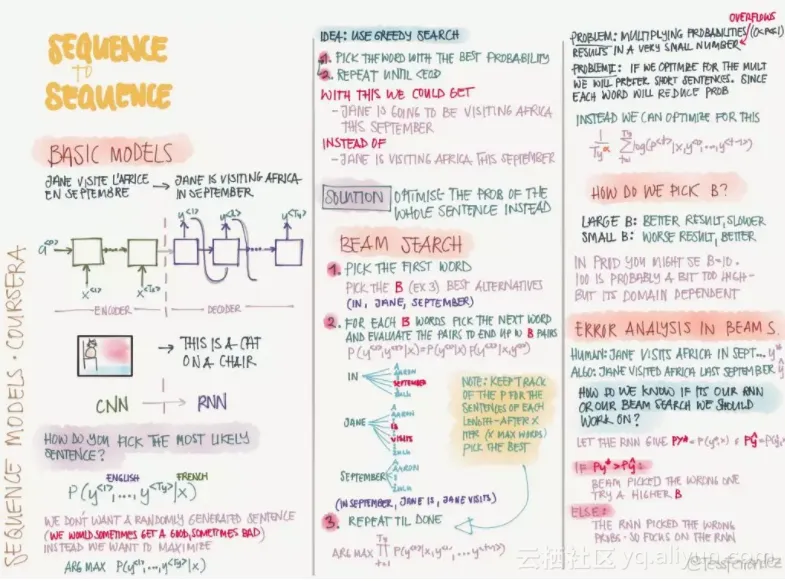 SEQUENCE
to
SEQUENCE
BASIC MODELS
JANE VISITE L'AFRICE
EN SEPTEMBRE
→ JANE IS VISITING AFRICA
IN SEPTEMBER
a<0>
x<1>
x<Tx>
y<1>
y<2>
y<Ty>
ENCODER
DECODER
→ THIS IS A CAT
ON A CHAIR
CNN → RNN
HOW DO YOU PICK THE MOST LIKELY
SENTENCE?
ENGLISH
FRENCH
P(y<1>,...,y<Ty>|x)
WE DON'T WANT A RANDOMLY GENERATED SENTENCE
(WE WOULD SOMETIMES GET A GOOD, SOMETIMES BAD)
INSTEAD WE WANT TO MAXIMIZE
ARG MAX P(y<1>,...,y<Ty>|x)
SEQUENCE MODELS · COURSERA
IDEA: USE GREEDY SEARCH
1. PICK THE WORD WITH THE BEST PROBABILITY
2. REPEAT UNTIL <EOD
WITH THIS WE COULD GET
- JANE IS GOING TO BE VISITING AFRICA
THIS SEPTEMBER
INSTEAD OF
- JANE IS VISITING AFRICA THIS SEPTEMBER
SOLUTION
OPTIMISE THE PROB OF THE
WHOLE SENTENCE INSTEAD
BEAM SEARCH
1. PICK THE FIRST WORD
PICK THE B (EX 3) BEST ALTERNATIVES
(IN, JANE, SEPTEMBER)
2. FOR EACH B WORDS PICK THE NEXT WORD
AND EVALUATE THE PAIRS TO END UP W B PAIRS
P(y<1>,y<2>|x)=P(y<1>|x) P(y<2>|x,y<1>)
IN
A
AARON
SEPTEMBER
ZULU
JANE
A
AARON
IS
VISITS
ZULU
SEPTEMBER
A
AARON
ZULU
NOTE: KEEP TRACK
OF THE P FOR THE
SENTENCES OF EACH
LENGTH - AFTER X
ITER (X MAX WORDS)
PICK THE BEST
(IN SEPTEMBER, JANE IS, JANE VISITS)
3. REPEAT TIL DONE
ARG MAX
PROBLEM: MULTIPLYING PROBABILITIES (0<P≤1)
OVERFLOWS
RESULTS IN A VERY SMALL NUMBER
PROBLEM II: IF WE OPTIMIZE FOR THE MULT
WE WILL PREFER SHORT SENTENCES. SINCE
EACH WORD WILL REDUCE PROB
INSTEAD WE CAN OPTIMIZE FOR THIS
HOW DO WE PICK B?
LARGE B: BETTER RESULT, SLOWER
SMALL B: WORSE RESULT, BETTER
IN PROD YOU MIGHT SE B=10.
100 IS PROBABLY A BIT TOO HIGH-
BUT ITS DOMAIN DEPENDENT
ERROR ANALYSIS IN BEAM S.
HUMAN: JANE VISITS AFRICA IN SEPT... y*
ALGO: JANE VISITED AFRICA LAST SEPTEMBER ŷ
HOW DO WE KNOW IF ITS OUR RNN
OR OUR BEAM SEARCH WE SHOULD
WORK ON?
LET THE RNN GIVE
IF Py* > Pŷ:
BEAM PICKED THE WRONG ONE
TRY A HIGHER B
ELSE:
THE RNN PICKED THE WRONG
PROBS - SO FOCUS ON THE RNN
云栖社区 yq.aliyun.com
@tessferrandez